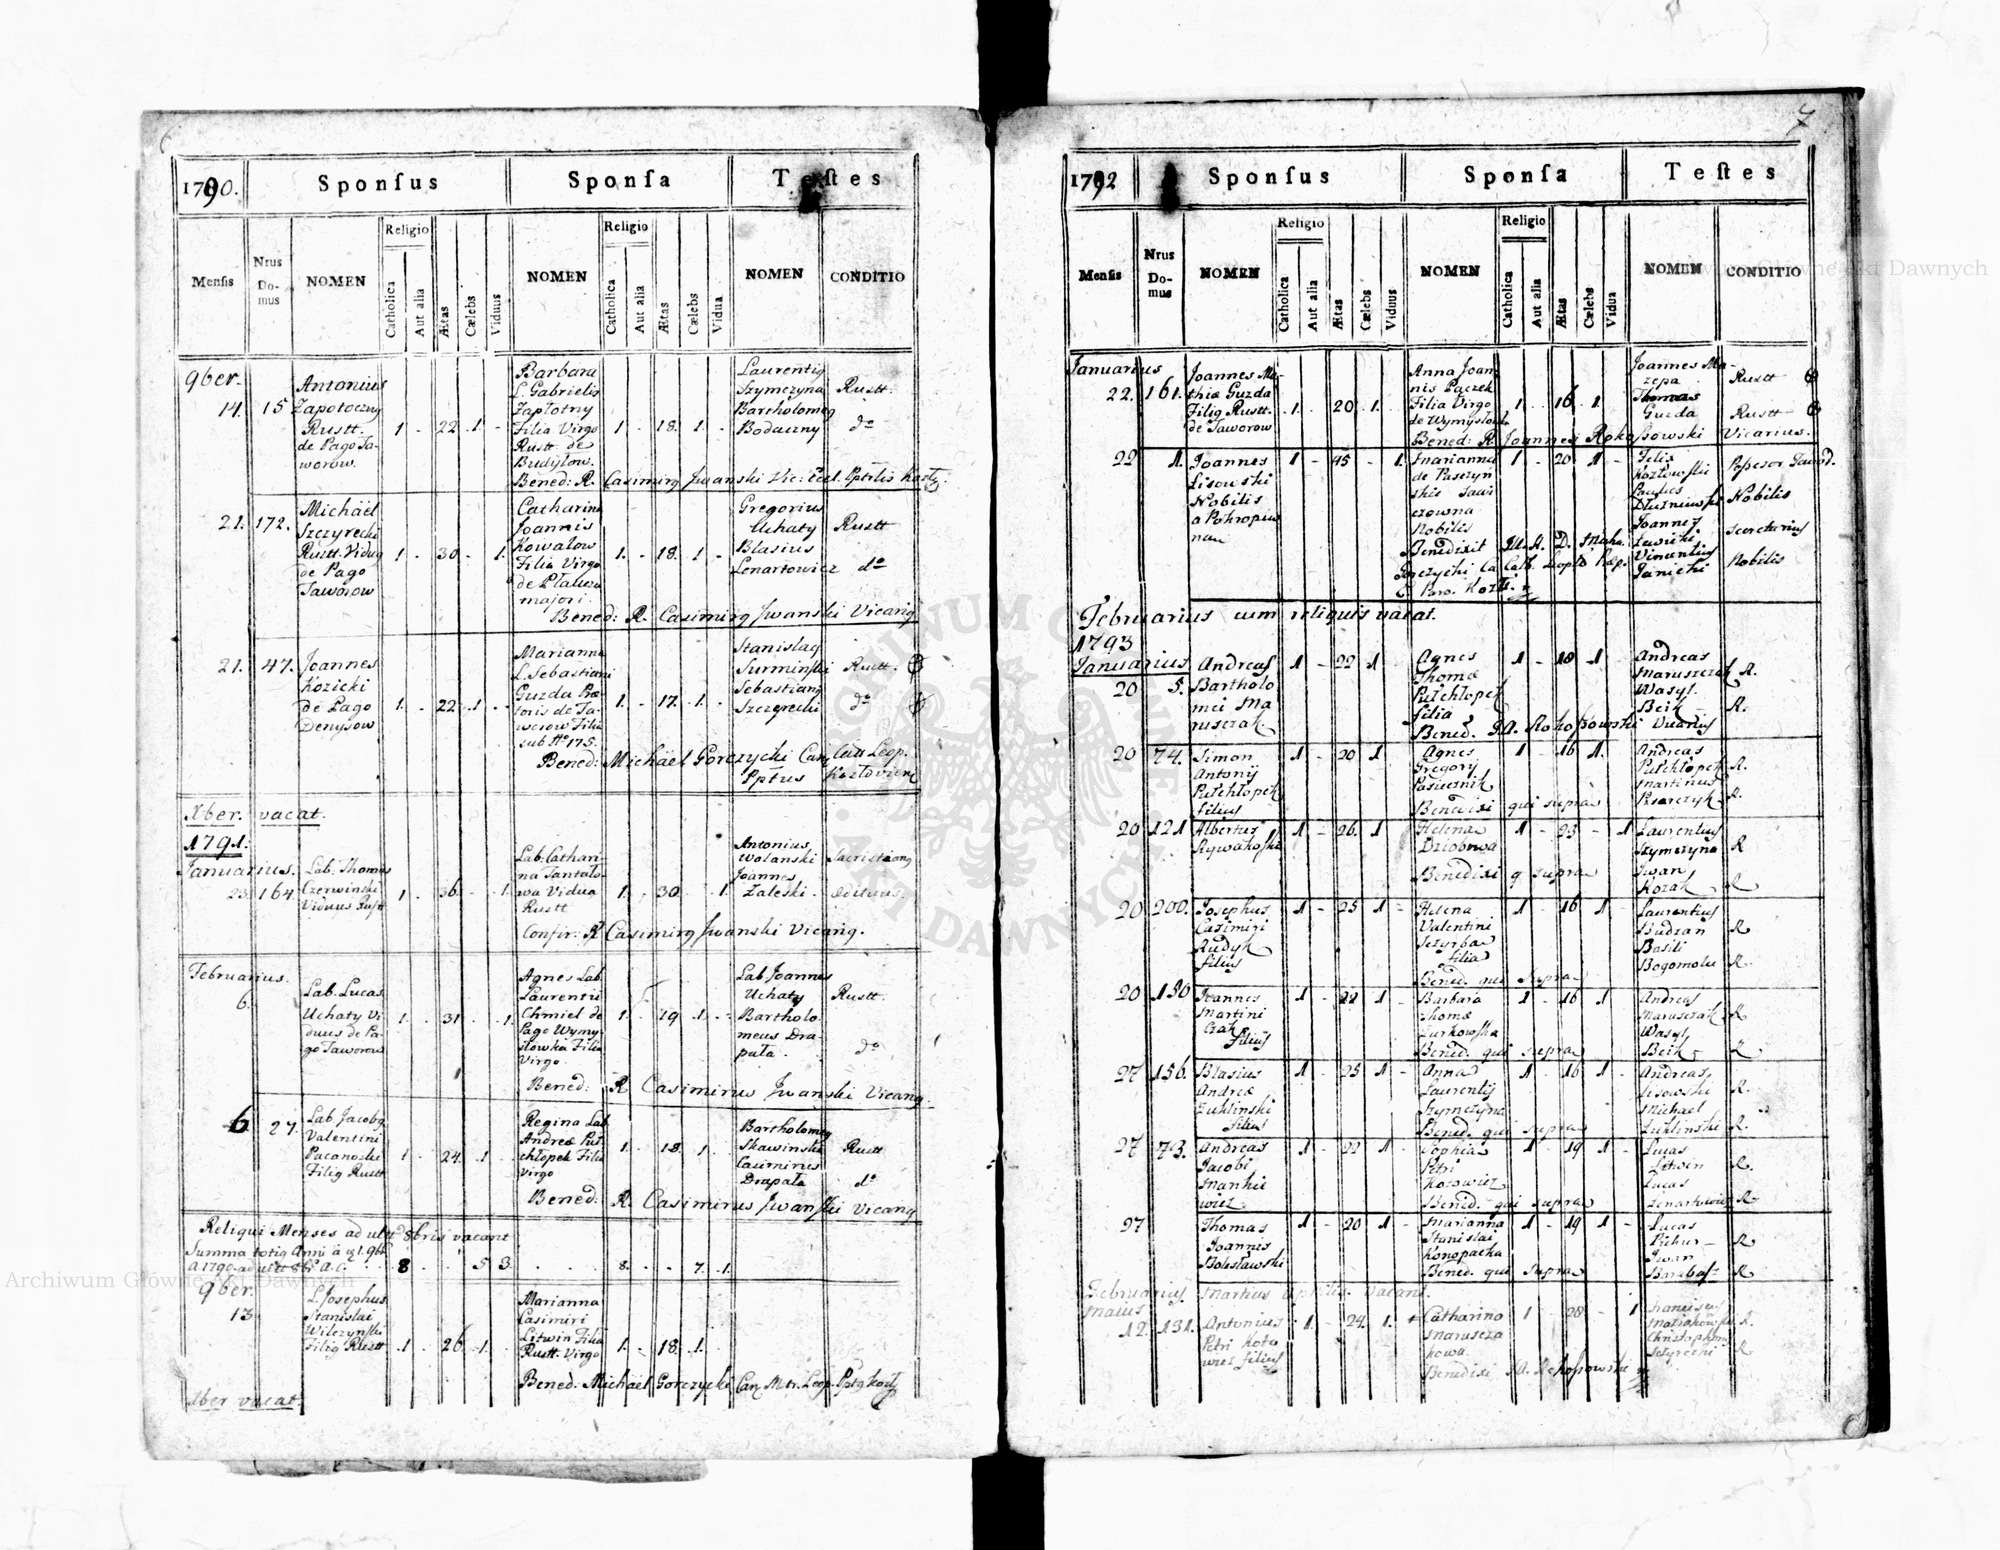 6
1790.
Sponsus
Sponsa
Testes
Mensis
Nrus Domus
NOMEN
Religio
Catholica
Aut alia
Ætas
Cælebs
Viduus
NOMEN
Religio
Catholica
Aut alia
Ætas
Cælebs
Vidua
NOMEN
CONDITIO
9ber.
14. 15
Antonius
Zapotoczny
Rustt.
de Pago Ja-
worow.
1 - 22 1 -
Barbara
L. Gabrielis
Zapłotny
Filia Virgo
Rustt de
Budyłow.
1 - 18. 1. -
Laurentiy
Szymczyna Rustt.
Bartholomeg
Bodaczny do
Bened: R. Casimirg Jwanski Vic: Ecl.
21. 172.
Michäel
Szczyrecki
Rustt. Vidug
de Pago
Jaworow
1 - 30 - 1.
Catharina
Joannis
Kowalow
Filia Virgo
de Płaucza
majori.
1. - 18. 1 -
Gregorius
Uchaty Rustt
Blasius
Lenartowicz do
Bened: R. Casimirg Jwanski Vicarig
21. 47.
Joannes
Kozicki
de Pago
Denysow
1. - 22 1 -
Marianna
L. Sebastiani
Guzda Præ-
toris de Ja-
worow Filia
sub No 175.
1. - 17. 1. -
Stanislag
Surminski Rustt.
Sebastiang
Szczyrecki do
Bened: Michäel Gorczycki Can
Xber. vacat.
1791.
Januarius.
23. 164.
Lab. Thomas
Czerwinski
Viduus Rustt
1. - 36. - 1.
Lab. Cathari-
na Santało-
wa Vidua
Rustt
1. - 30. - 1.
Antonius
Wolanski Sacristiang
Joannes
Zaleski. Ædituus.
Confir: R Casimirg Jwanski Vicarig.
Februarius.
6.
Lab. Lucas
Uchaty Vi-
duus de Pa-
go Jaworow
1. - 31 - 1.
Agnes Lab.
Laurentii
Chmiel de
Pago Wymy-
słowka Filia
Virgo.
1. - 19 1. -
Lab. Joannes
Uchaty Rustt.
Bartholo
meus Dra-
pała. do
Bened: R Casimirus Jwanski Vicarig.
6 27.
Lab. Jacobg
Valentini
Pacanoski
Filig Rustt
1. - 24. 1 -
Regina Lab.
Andreæ Puł-
chłopek Filia
virgo
1. - 18. 1. -
Bartholomeg
Skawinski Rustt
Casimirus
Drapała do
Bened: R. Casimirus Jwanski Vicarig
Reliqui Menses ad 8bris vacant
Summa totig Anni
8 5 3 8. 7. 1.
9ber.
13
L. Josephus
Stanislai
Wilczynski
Filig Rustt
1 - 26 1 -
Marianna
Casimiri
Litwin Filia
Rustt. Virgo
1. - 18. 1. -
Bened: Michäel Gorczycki Can.
Xber vacat.
7
1792
Sponsus
Sponsa
Testes
Mensis
Nrus Domus
NOMEN
Religio
Catholica
Aut alia
Ætas
Cælebs
Viduus
NOMEN
Religio
Catholica
Aut alia
Ætas
Cælebs
Vidua
NOMEN
CONDITIO
Januarius
22. 161.
Joannes Ma-
thiæ Guzda
Filig Rustt.
de Jaworow
1. 20 1.
Anna Joan-
nis Paczek
Filia Virgo
de Wymysłowka
1 - 16. 1.
Joannes Ma-
zepa Rustt
Thomas
Guzda Rustt
Bened: R. Joannes Rokossowski Vicarius.
22 1.
Joannes
Lisowski
Nobilis
1 - 45 - 1.
Marianna
de
Nobilis
1 - 20. 1 -
Felix
Kozłowski
Nobilis
Joannes Secretarius
Vincentius
Janicki Nobilis
Februarius cum reliquis vacat.
1793
Januarius
20 5.
Andreas
Bartholo
mei Ma
rusczak
1 - 22 1
Agnes
Thomæ
Pułchłopek
filia
1 - 18 1
Andreas
Marusczak R.
Wasyl
Beik R.
Bened. Rokossowski Vicarius
20 74.
Simon
Antonij
Pułchłopek
filius
1 - 20 1
Agnes
Gregorij
Pasiecznik
1 - 16 1.
Andreas
Pułchłopek R.
Martinus
Pisarczyk R.
Benedixi qui supra
20 121
Albertus
1 - 26. 1
Helena
1 - 23 - 1
Laurentius
Szymczyna R
Iwan
Kozak R
Benedixi q supra
20 200.
Josephus
Casimiri
Rudyk
filius
1 - 25 1 -
Helena
Valentini
Szczyrba
filia
1 - 16 1 -
Laurentius
Budzan R
Basili
R
Bened. qui supra
20 130
Joannes
Martini
Czak
filius
1 - 22 1 -
Barbara
Thomæ
Żurkowska
1 - 16 1
Andreas
Marusczak R
Wasyl
Beik R
Bened. qui supra
27 156.
Blasius
Andreæ
Żuklinski
filius
1 - 25 1 -
Anna
Laurentij
Szymczyna
1 - 16 1 -
Andreas
Lisowski R.
Michael
Żuklinski R.
Bened. qui supra
27 73.
Andreas
Jacobi
Mankie
wicz
1 - 22 1 -
Sophia
Petri
Kotowicz
1 - 19 1 -
Lucas
Litwin R.
Lucas
Lenartowicz R.
Bened. qui supra
27
Thomas
Joannis
Bolesławski
1 - 20 1 -
Marianna
Stanislai
Konopacka
1 - 19 1 -
Lucas
R
Iwan
R
Bened. qui supra
Februarius Martius Aprilis vacant.
Maius
12. 131.
Antonius
Petri Koto
wicz filius
1. - 24. 1. -
Catharina
Marusza
kowa
1 - 28 - 1
R.
R
Benedixi
Archiwum Główne Akt Dawnych
ARCHIWUM GŁÓWNE AKT DAWNYCH
Archiwum Główne Akt Dawnych